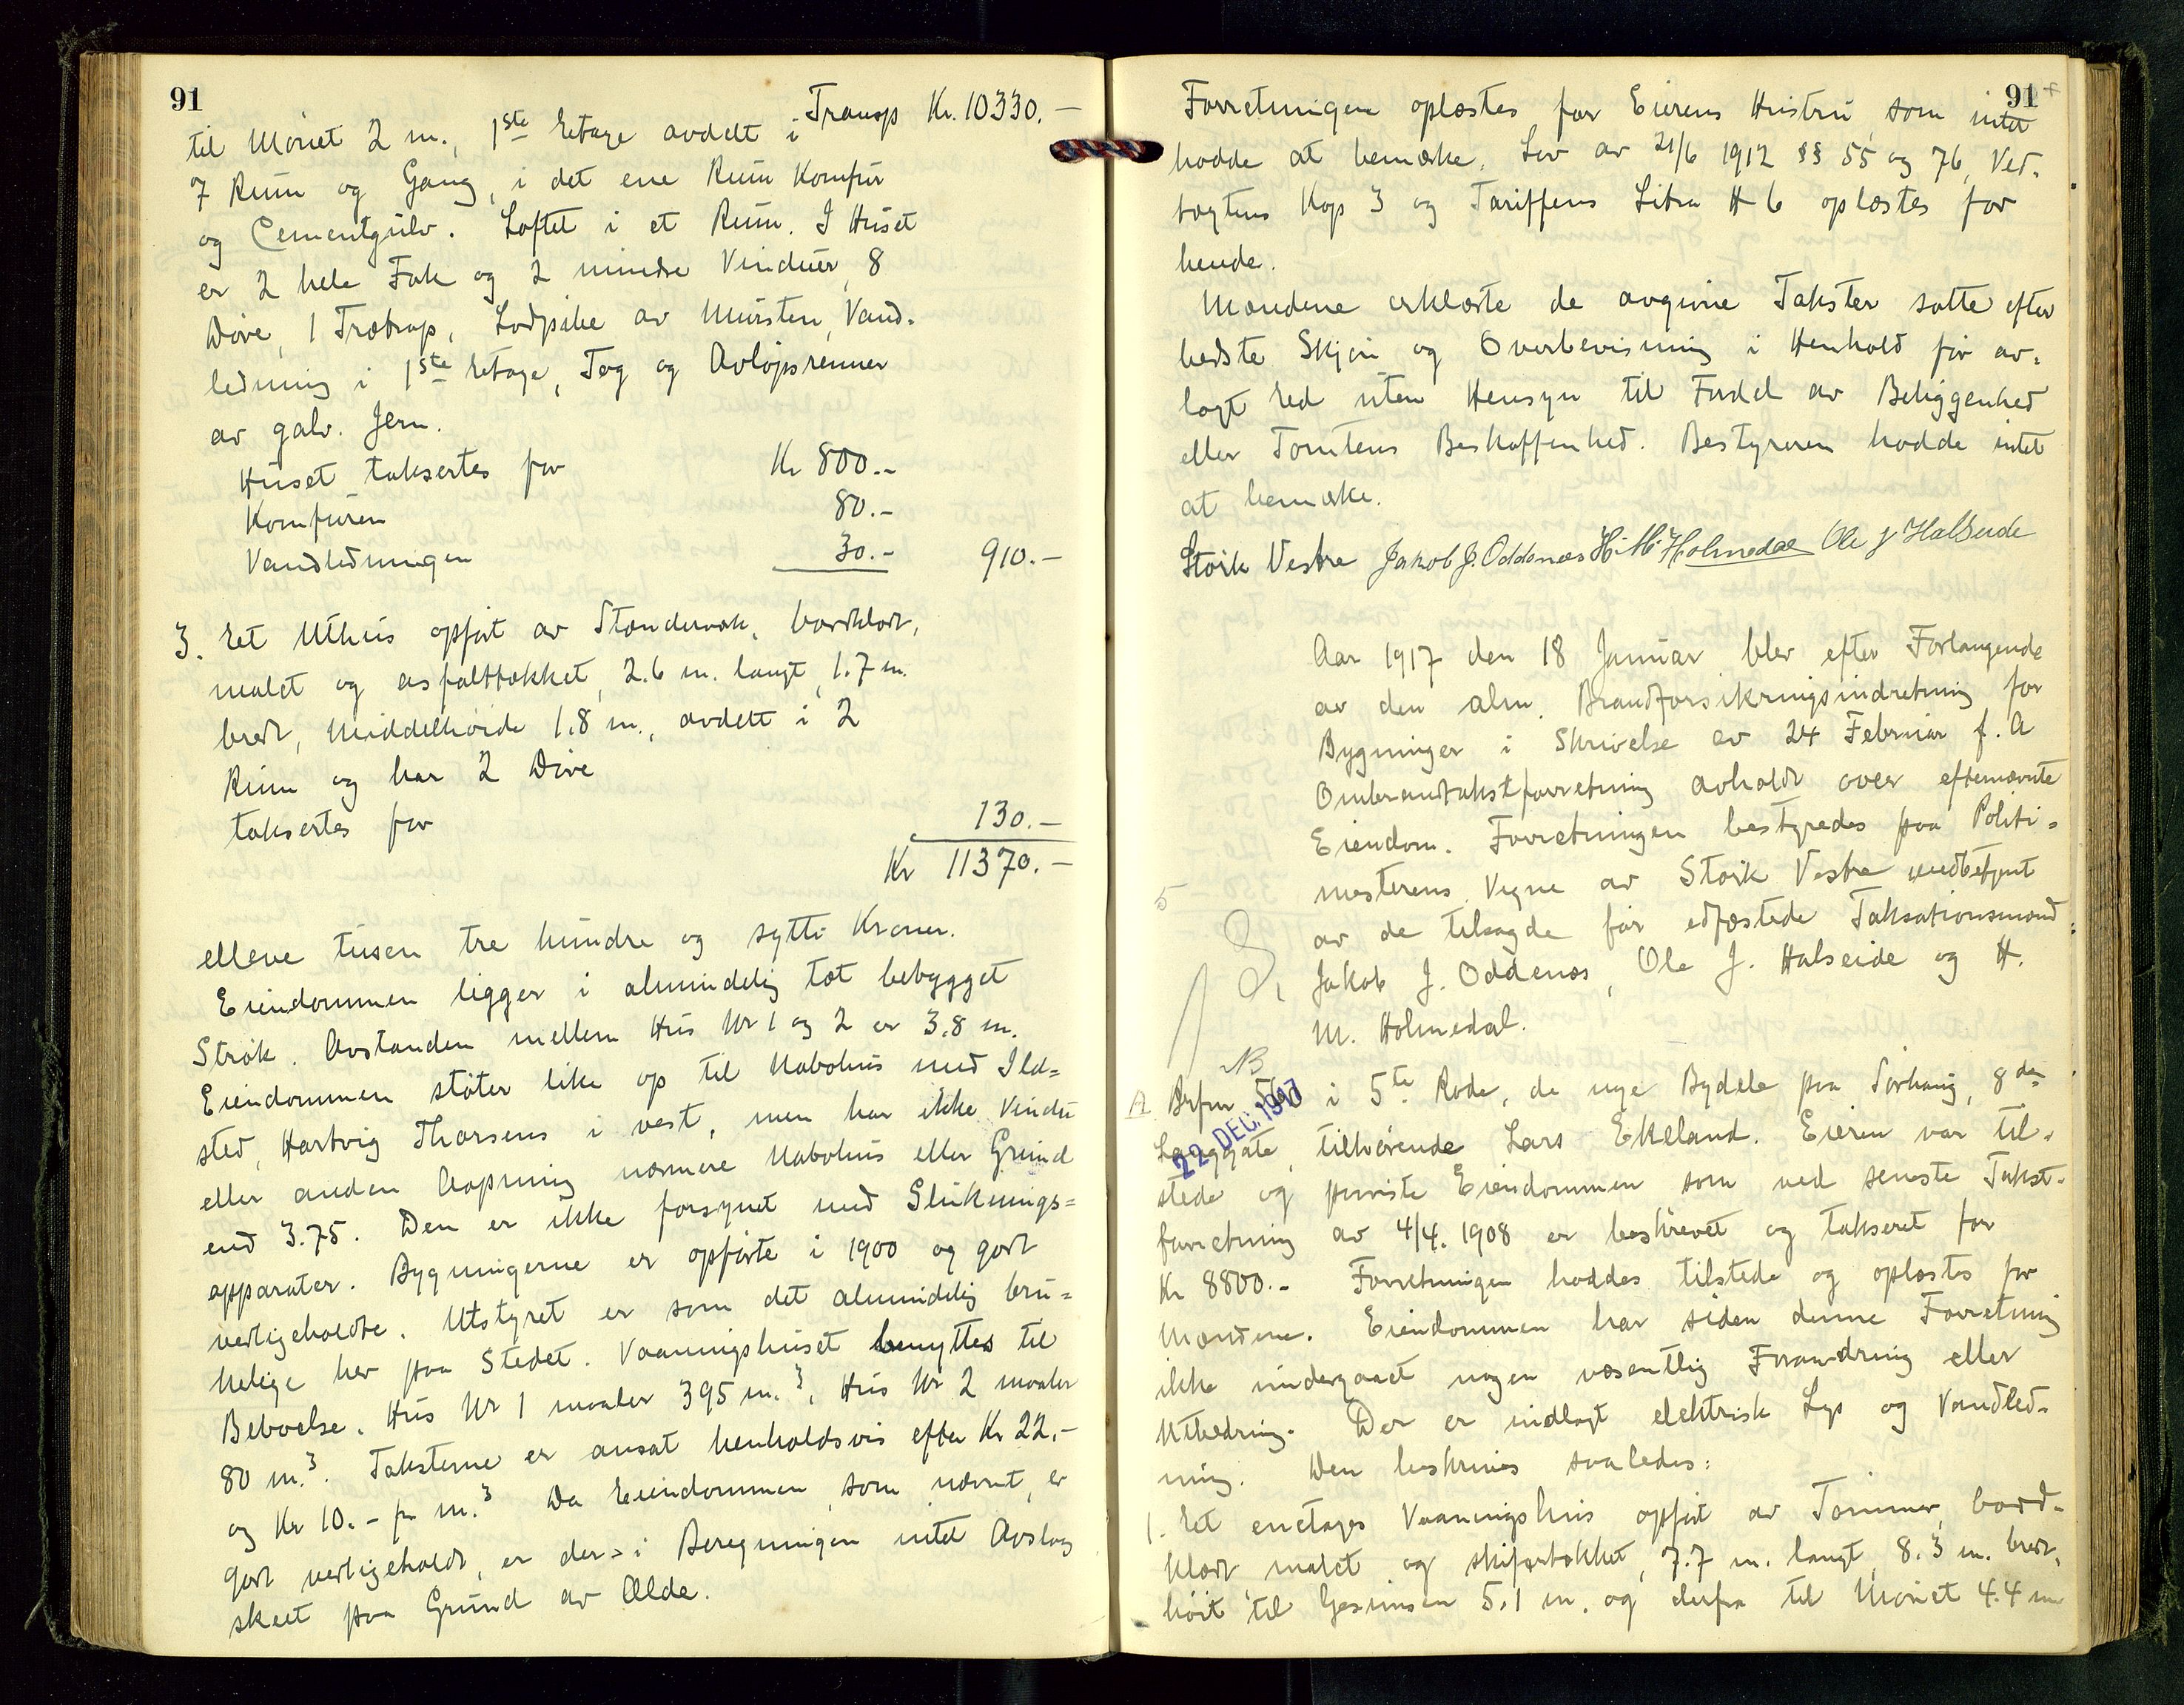 91
Transp Kr. 10330.-
til Mønet 2 m., 1ste Etage avdelt i
7 Rum og Gang, i det ene Rum Komfur
og Cementgulv. Loftet i et Rum. I Huset
er 2 hele Fak og 2 mindre Vinduer, 8
Døre, 1 Trætrap, Lodpibe av Mursten, Vand-
ledning i 1ste Etage, Tag og Avløpsrenner
av galv. Jern.
Huset taksertes for Kr 800.-
Komfuren 80.-
Vandledningen 30.- 910.-
3. Et Uthus opført av Stenderverk, bordklædt,
malet og asfalttækket, 2.6 m. langt, 1.7 m.
bredt, Middelhøide 1.8 m., avdelt i 2
Rum og har 2 Døre
taksertes for
130.-
Kr 11370.-
elleve tusen tre hundre og sytti Kroner.
Eiendommen ligger i almindelig tæt bebygget
Strøk. Avstanden mellem Hus Nr 1 og 2 er 3.8 m.
Eiendommen støter like op til Nabohus med Ild=
sted, Hartvig Thorsens i vest, men har ikke Vindu
eller anden Aapning nærmere Nabohus eller Grund
end 3.75. Den er ikke forsynet med Sluknings=
apparater. Bygningerne er opførte i 1900 og godt
vedligeholdte. Utstyret er som det almindelig bru=
kelige her paa Stedet. Vaaningshuset benyttes til
Beboelse. Hus Nr 1 maaler 395 m.3, Hus Nr 2 maaler
80 m.3. Taksterne er ansat henholdsvis efter Kr 22.-
og Kr 10.- pr m.3 Da Eiendommen, som nævnt, er
godt vedligeholdt, er der i Beregningen intet Avslag
skeet paa Grund av Ælde.
91
Forretningen oplæstes for Eierens Hustru, som intet
hadde at bemerke. Lov av 21/6 1912 §§ 55 og 76, Ved-
tægtens Kap 3 og Tariffens Litra H 6 oplæstes for
hende.
Mændene erklærte de avgivne Takster satte efter
bedste Skjøn og Overbevisning i Henhold før av-
lagt Ed uten Hensyn til Fordel av Beliggenhed
eller Tomtens Beskaffenhed. Bestyreren hadde intet
at bemerke.
Størk Vestre Jakob J. Oddenæs H. M. Holmedal Ole J Halseide
Aar 1917 den 18 Januar blev efter Forlangende
av den alm. Brandforsikringsindretning for
Bygninger i Skrivelse av 24 Februar f. A
Ombrandtakstforretning avholdt over efternævnte
Eiendom. Forretningen bestyredes paa Politi-
mesterens Vegne av Størk Vestre medbetjent
av de tilsagde før edfæstede Taksationsmænd:
Jakob J. Oddenæs, Ole J. Halseide og H.
M. Holmedal.
NB
A Brfnr 560 i 5te Rode, de nye Bydele paa Sørhaug, 8de
22 DEC. 1917
Langgate, tilhørende Lars Ekeland. Eieren var til-
stede og paaviste Eiendommen som ved seneste Takst-
forretning av 4/4. 1908 er beskrevet og takseret for
Kr 8800.- Forretningen haddes tilstede og oplæstes for
Mændene. Eiendommen har siden denne Forretning
ikke undergaaet nogen væsentlig Forandring eller
Utbedring. Der er indlagt elektrisk Lys og Vandled-
ning. Den beskrives saaledes:
1. Et enetages Vaaningshus opført av Tømmer, bord-
klædt malet og skifertækket, 7.7 m. langt, 8.3 m. bredt,
høit til Gesimsen 5.1 m. og derfra til Mønet 4.4 m